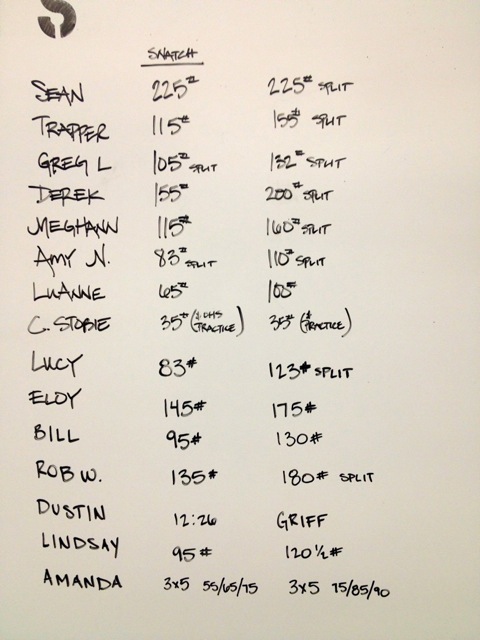 S
SNATCH
SEAN 225# 225# SPLIT
TRAPPER 115# 155# SPLIT
GREG L 105# SPLIT 132# SPLIT
DEREK 155# 200# SPLIT
MEGHANN 115# 160# SPLIT
AMY N. 83# SPLIT 110# SPLIT
LUANNE 65# 105#
C. STOBIE 35# (& OHS PRACTICE) 35# (& PRACTICE)
LUCY 83# 123# SPLIT
ELOY 145# 175#
BILL 95# 130#
ROB W. 135# 180# SPLIT
DUSTIN 12:26 GRIFF
LINDSAY 95# 120 1/2#
AMANDA 3x5 55/65/75 3x5 75/85/90